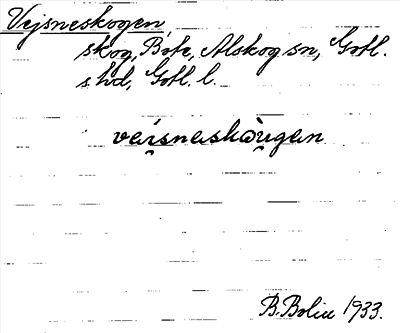 Vejsneskogen
skog, Bote, Alskog sn, Gotl.
s hd, Gotl. l.
vei̯snaskò̯u̯gen
B. Bolin 1933.